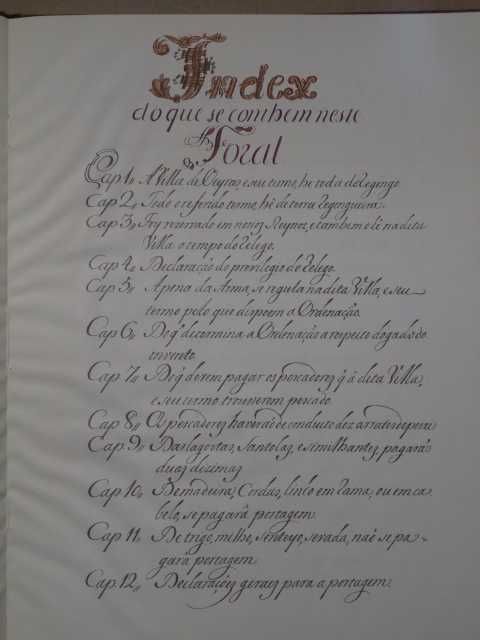 Index
do que se conthem neste
Foral
Cap 1. A Villa de Oeyras e seu termo, he toda de Regengo.
Cap 2. Todo o referido termo, hê de terra Regengueira.
Cap 3. Foy rezervado em nosos Reynoz, e tambem o lê na dita
Villa o tempo do Relego.
Cap 4. Declaração do previlegio do Relego.
Cap 5. Apena da Arma, se regula na dita Villa, e seu
termo pelo que dispoem a Ordenação.
Cap 6. Do q' determina a Ordenação a respeito do gado do
invento.
Cap 7. Do q' devem pagar os pescadorez q' â dita Villa,
e seu termo trouxerem pescado.
Cap 8. Os pescadorez haverão de conduto dez arrates de peixe
Cap 9. Das lagostas, Santolaz, e similhantez pagarâ
duaz dizimaz
Cap 10. De madeira, Cordas, linho em rama, ou em ca
belo, se pagarâ portagem.
Cap 11. De trigo, milho, senteyo, sevada, naõ se pa-
garâ portagem.
Cap 12. Declaraçoez geraez para a portagem.